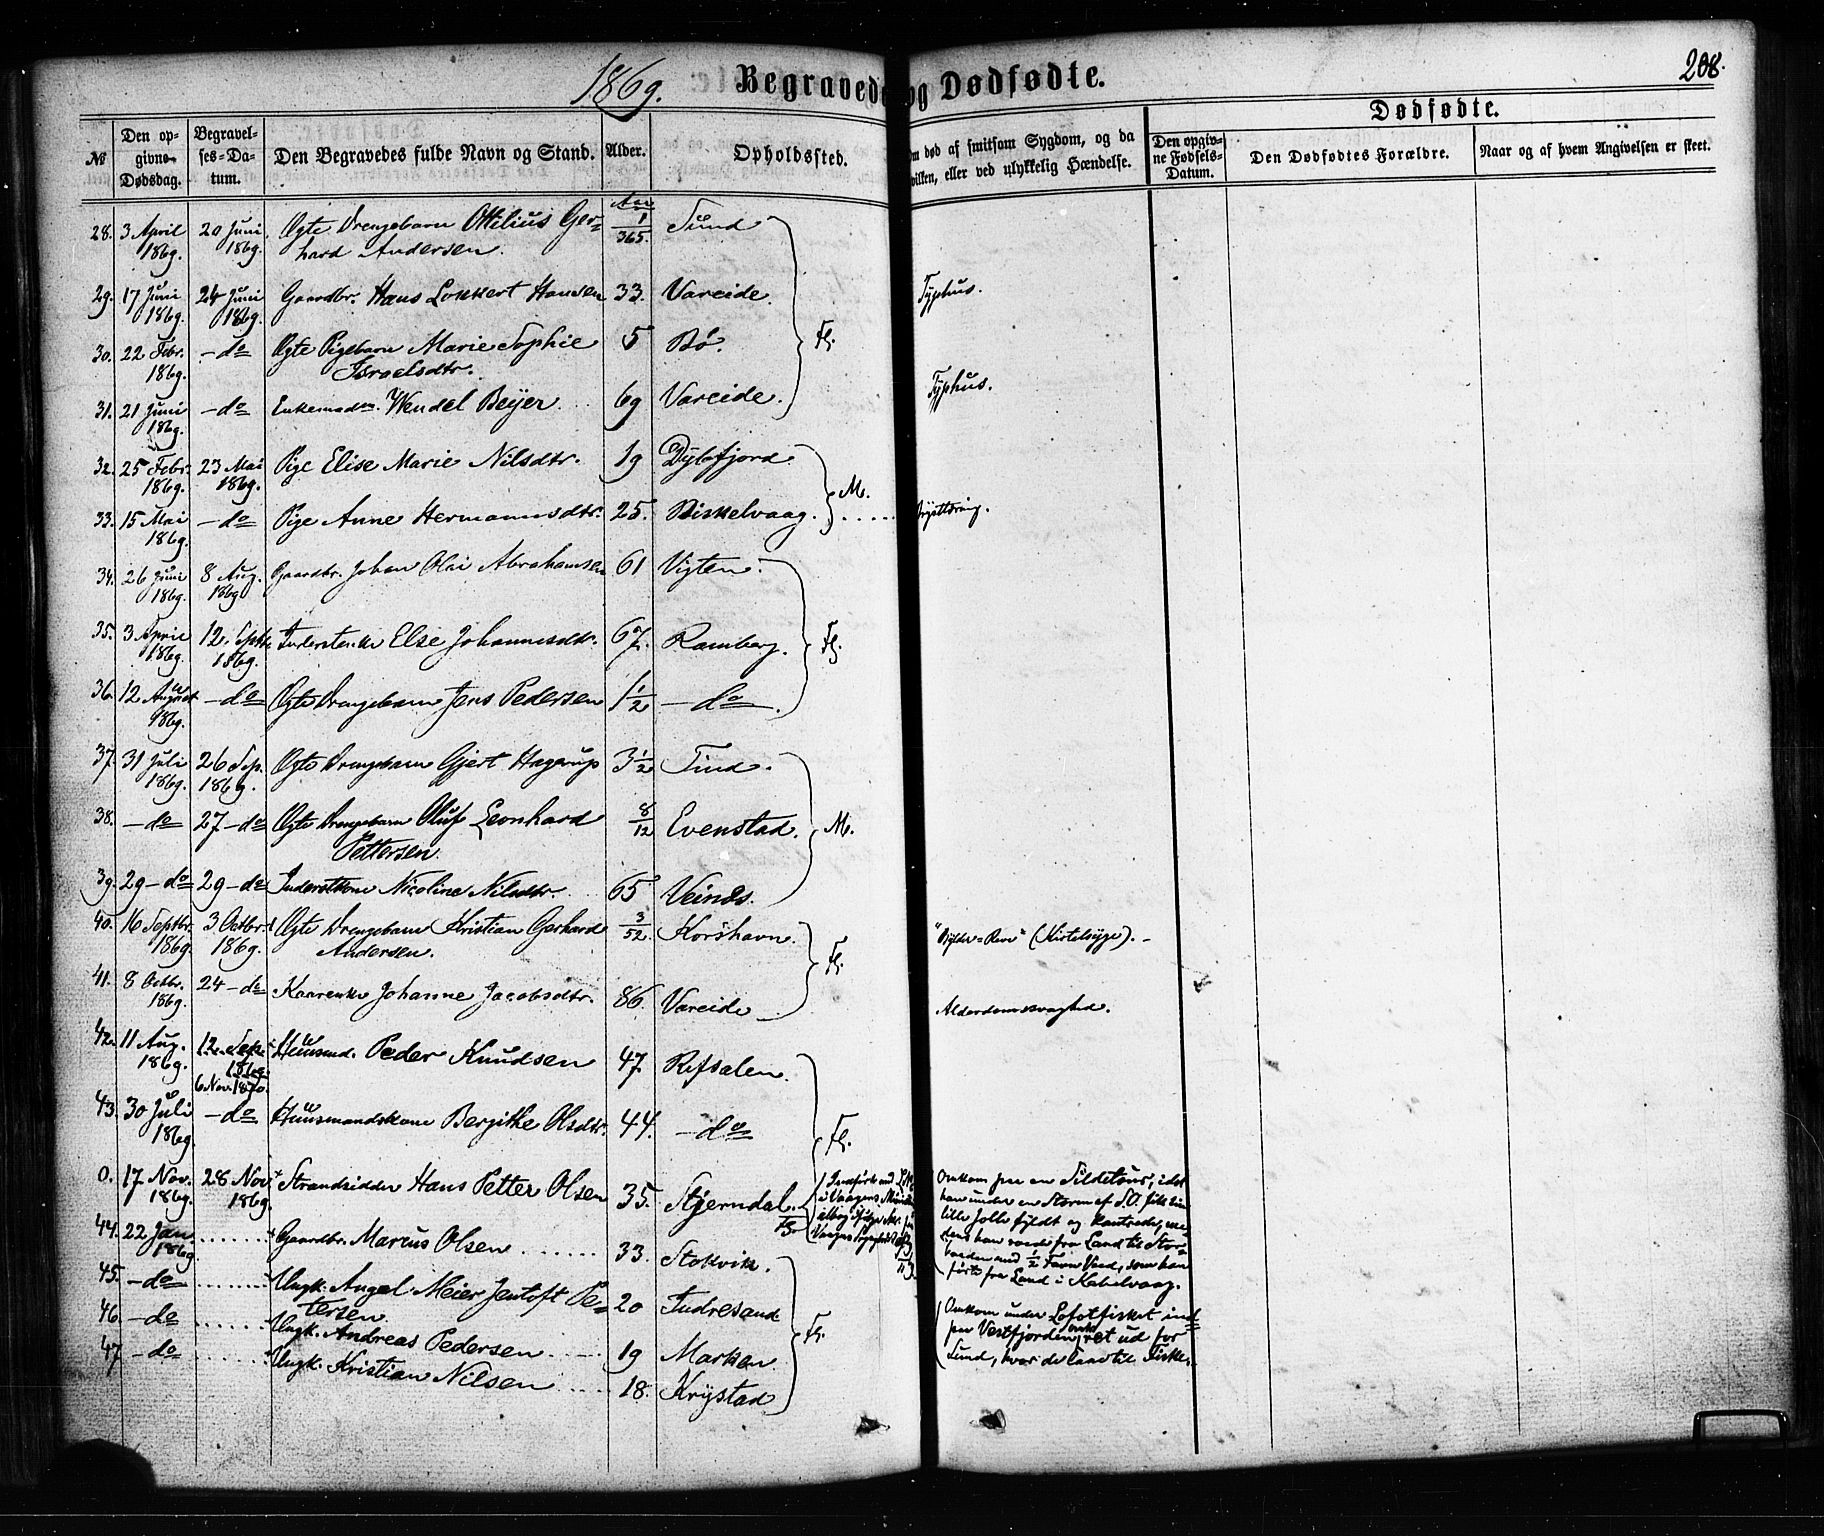 1869. Begravede og Dødfødte. 208.
Dødfødte.
No Den opgivne Dødsdag. Begravelses-Datum. Den Begravedes fulde Navn og Stand. Alder. Opholdssted. om død af smitsom Sygdom, og da hvilken, eller ved ulykkelig Hændelse. Den opgivne Fødsels-Datum. Den Dødfødtes Forældre. Naar og af hvem Angivelsen er skeet.
28. 3 April 1869. 20 Juni 1869. Ægte Drengebarn Ottilius Ger=
hard Andersen. 1/365. Sund
29. 17 Juni 1869. 24 Juni 1869. Gaardbr. Hans Lonkert Hansen 33. Vareide. Typhus.
30. 22 Febr. 1869. -do- Ægte Pigebarn Marie Sophie
Israelsdtr. 5 Bø. Fl.
31. 21 Juni 1869. -do- Enkemadm. Wendel Beyer. 69 Vareide. Typhus.
32. 25 Febr. 1869. 23 Mai 1869. Pige Elise Marie Nilsdtr. 19 Dybfjord.
33. 15 Mai 1869. -do- Pige Anne Hermannsdtr. 25. Biskelvaag. M.
34. 26 Juni 1869. 8 Aug. 1869 Gaardbr. Johan Olai Abrahamsen 61 Vigten.
35. 3 April 1869. 12. Septbr 1869. Inderstenke Else Johannesdtr. 67. Ramberg. Fl.
36. 12 August 1869. -do- Ægte Drengebarn Jens Pedersen 1 1/2 -do-
37. 31 Juli 1869. 26 Sep. 1869. Ægte Drengebarn Gjert Hagerup 3 1/2 Tind.
38. -do- 27 -do- Ægte Drengebarn Oluf Leonhard
Pettersen. 8/12 Evenstad. M.
39. 29 -do- 29 -do- Inderstkone Nicoline Nilsdtr. 65 Veines.
40. 16 Septbr. 1869. 3 Octbr. 1869. Ægte Drengebarn Kristian Gerhard
Andersen. 3/52. Korshavn. (Kirtelsyge).
41. 8 Octbr. 1869. 24 -do- Kaarenke Johanne Jacobsdtr. 86. Vareide Fl. Alderdomssvaghed.
42. 11 Aug. 1869. 12. Sep. 1869. 6 Nov. 1870. Huusmd. Peder Knudsen 47 Refsalen.
43. 30 Juli 1869. -do- Huusmandskone Bergithe Olsdtr. 44. -do- Fl.
0. 17 Nov. 1869. 28 Nov. 1869. Strandsidder Hans Petter Olsen 35. Stjerndal. Fl.
Omkom paa en Sildetour, idet
han under en Storm af S.O. fik sin
lille Jolle fyldt og kantrede, me=
dens han roede fra Land til Stor=
baaden med 1/2 Favn Ved, som han
førte fra Land i Kabelvaag.
44. 22 Jan 1869 Gaardbr. Marcus Olsen 33. Stokvik.
45. -do- Ungk. Angel Meier Jentoft Pe=
tersen 20 Indresand
46. -do- Ungk. Andreas Pedersen 19 Marken. Fl.
47 -do- Ungk. Kristian Nilsen 18. Krystad
Omkom under Lofotfisket ind=
paa Vestfjorden, ret ud for
Sund, hvor de laae til Fiske.